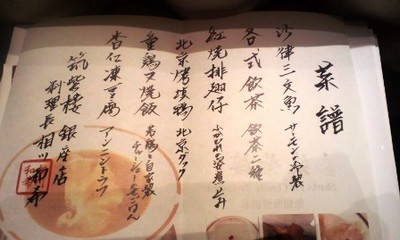 菜譜
沙律三文魚 サーモンの冷製
各式飲茶 飲茶二種
紅焼排翅仔 ふかひれの姿煮込み
北京烤填鴨 北京ダック
皇鶏叉焼飯
杏仁凍豆腐 アンニンドウフ
筑紫樓 銀座店
料理長 相川